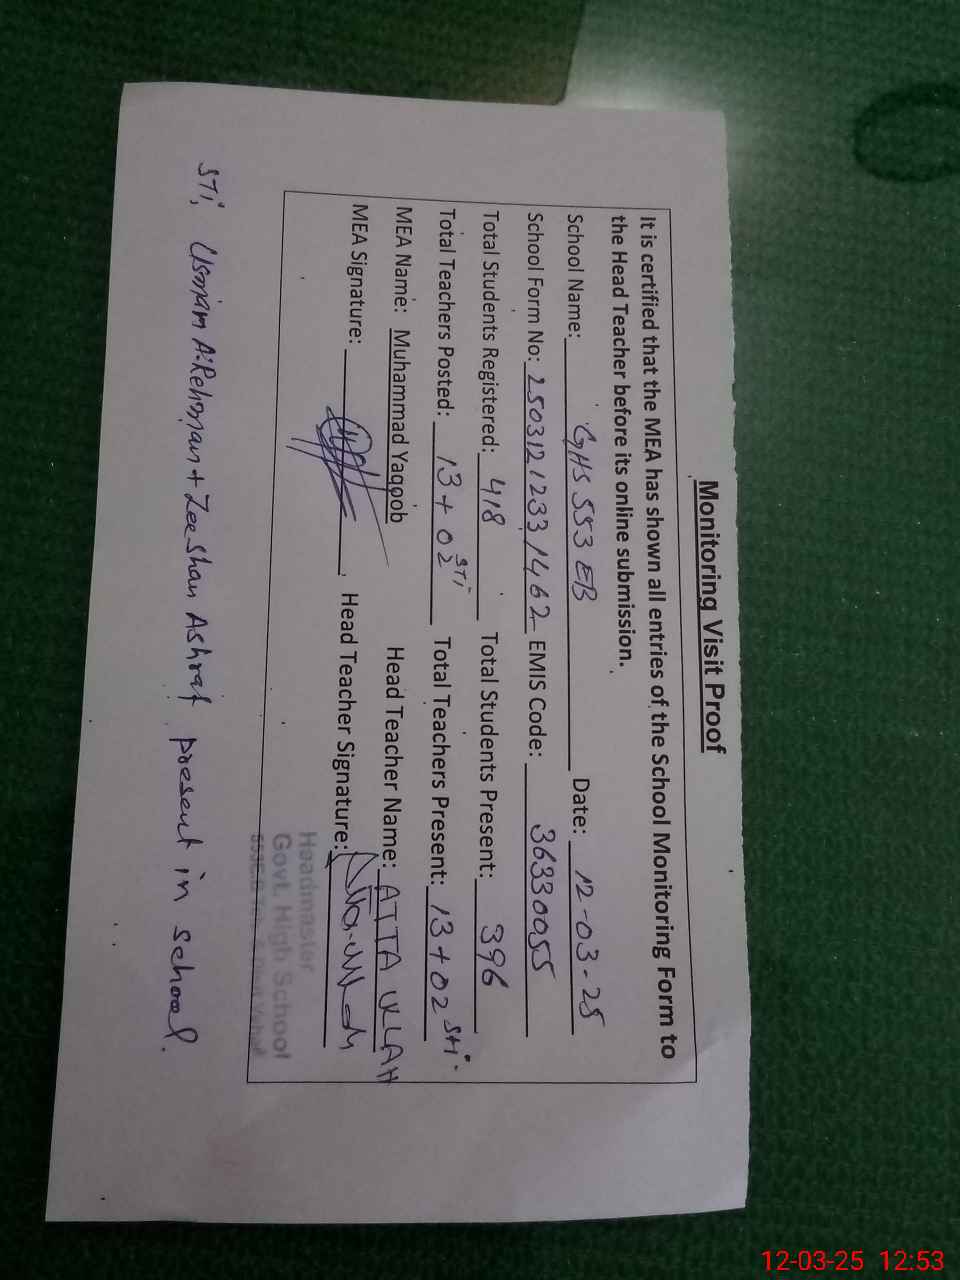 Monitoring Visit Proof
It is certified that the MEA has shown all entries of the School Monitoring Form to
the Head Teacher before its online submission.
School Name: GHS 553 EB Date: 12-03-25
School Form No: 2503121233/1462 EMIS Code: 36330055
Total Students Registered: 418 Total Students Present: 396
Total Teachers Posted: 13+02 STI Total Teachers Present: 13+02 STI
MEA Name: Muhammad Yaqoob Head Teacher Name: ATTA ULLAH
MEA Signature: Head Teacher Signature:
Headmaster
Govt. High School
STI, Usman A.Rehman + Zeeshan Ashraf present in school.
12-03-25 12:53